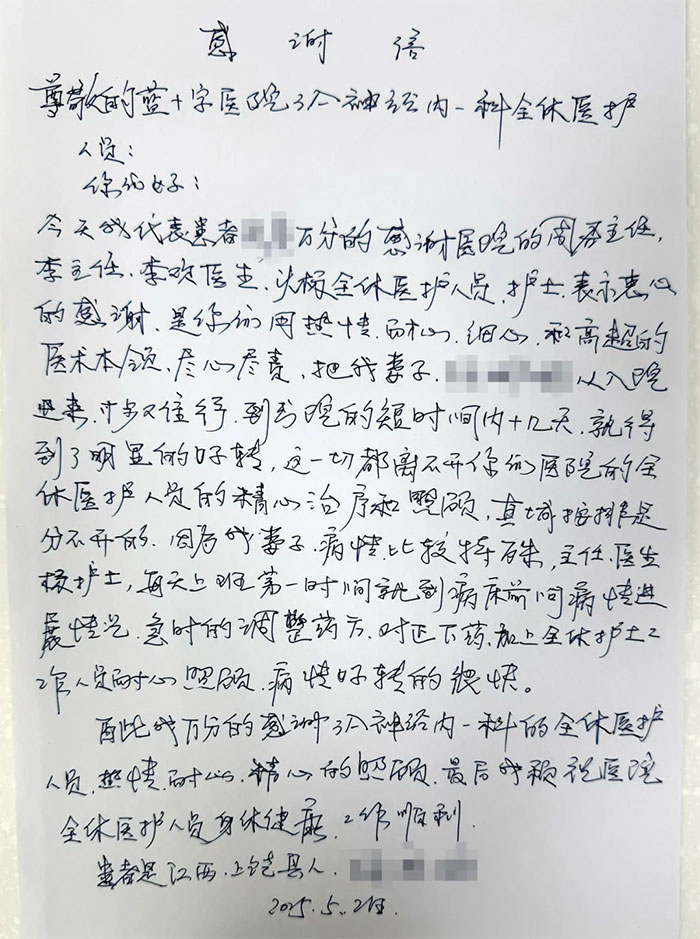 感谢信
尊敬的蓝十字医院3A神经内一科全体医护
人员:
你们好:
今天我代表患者 万分的感谢医院的周 主任,
李主任、李欢医生、 杨全体医护人员、护士、表示衷心
的感谢、是你们用热情、耐心、细心、和高超的
医术本领、尽心尽责、把我妻子、 从入院
寸步又住行、到 院的短时间内十几天、就得
到了明显的好转,这一切都离不开你们医院的全
体医护人员的精心治疗和照顾,真 按排是
分不开的、因为我妻子、病情比较特殊,主任、医生
杨护士,每天上班第一时间就到病床前问病情进
展情况、急时的调整药方、对正下药、加上全体护士工
作人员耐心照顾、病情好转的很快。
为此我万分的感谢3A神经内一科的全体医护
人员、热情、耐心、精心的照顾、最后我预祝医院
全体医护人员身体健康、工作顺利.
患者是江西、上饶县人、
2025.5.21日.